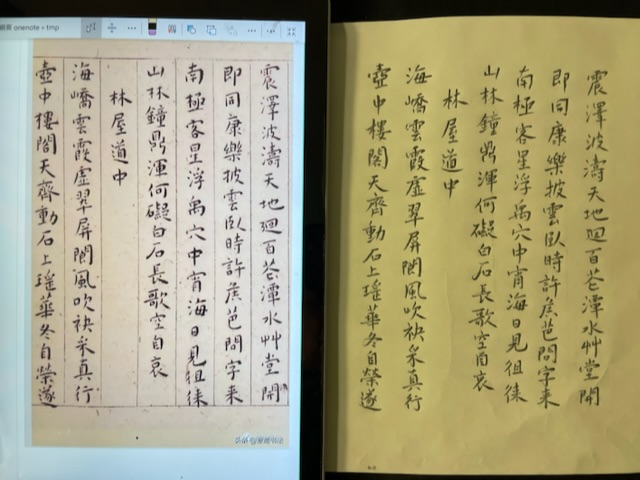 onenote - tmp
震澤波濤天地迴百花潭水艸堂開
即同康樂披雲臥時許矦芭問字来
南極客星浮禹穴中宵海日見徂徠
山林鐘鼎渾何礙白石長歌空自哀
林屋道中
海嶠雲霞虛翠屏閬風吹袂采真行
壺中樓閣天齊動石上瑤華冬自榮遂
震澤波濤天地迴百花潭水艸堂開
即同康樂披雲臥時許矦芭問字来
南極客星浮禹穴中宵海日見徂徠
山林鐘鼎渾何礙白石長歌空自哀
林屋道中
海嶠雲霞虛翠屏閬風吹袂采真行
壺中樓閣天齊動石上瑤華冬自榮遂